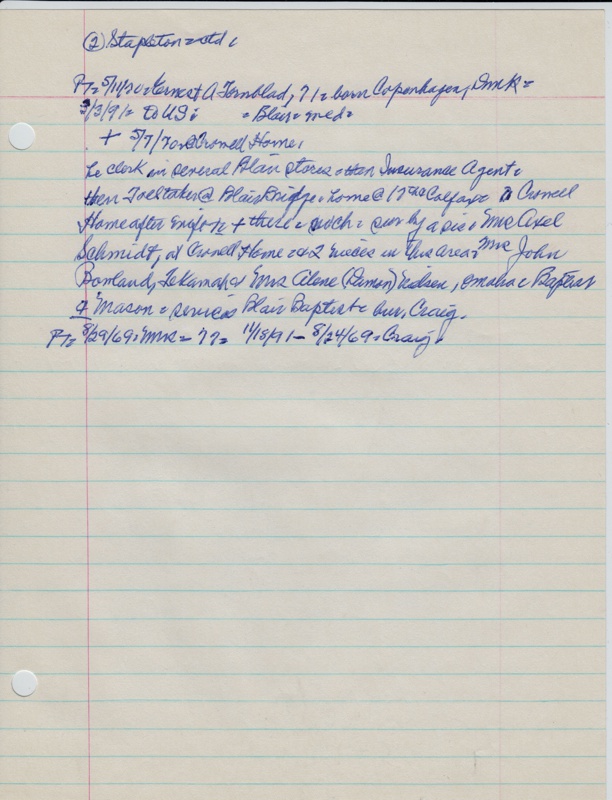 (2) Stapleton = etd.
PT= 5/14/70 = Ernest A Tornblad, 71 = born Copenhagen, Dmk =
3/3/91 = to US; = Blair = med =
+ 5/7/70 @ Crowell Home,
he clerk in several Blair stores = then Insurance Agent =
then Tolltaker @ Blair Bridge = home @ 17th Colfax Crowell
Home after = + there = such = surv by a sis = Mrs Axel
Schmidt, at Crowell Home = & 2 nieces in this area = Mrs John
Bonland, Tekamah & Mrs Alene (Damon) Nielsen, Omaha = Baptist
& Mason = services Blair Baptist = bur. Craig.
PT= 8/29/69 = Mrs = 77 = 11/18/91 - 8/24/69 = Craig.